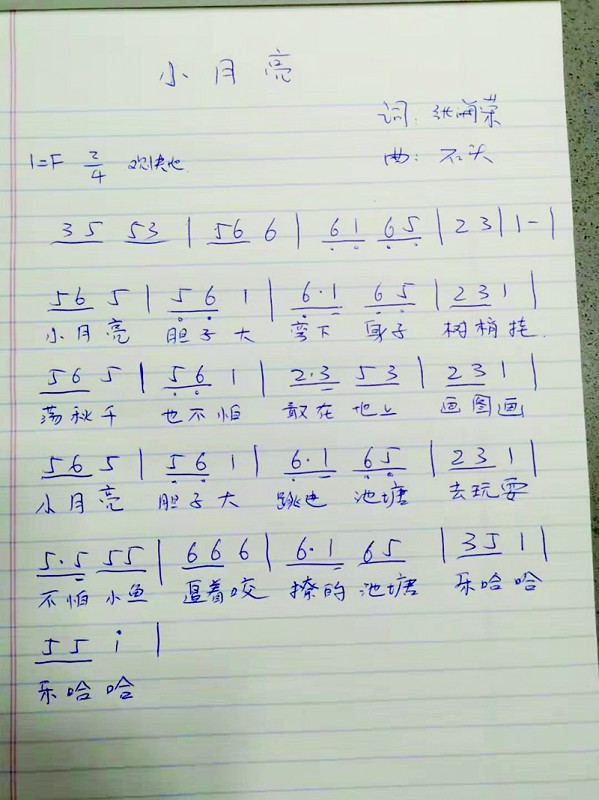 小月亮
词:张丽荣
1=F 2/4 欢快地 曲:石头
35 53 | 56 6 | 61 65 | 2 3 | 1 - |
56 5 | 56 1 | 6·1 65 | 23 1 |
小月亮 胆子大 弯下 身子 树梢挂
56 5 | 56 1 | 2·3 53 | 23 1 |
荡秋千 也不怕 敢在 地上 画图画
56 5 | 56 1 | 6·1 65 | 23 1 |
小月亮 胆子大 跳进 池塘 去玩耍
5·5 55 | 66 6 | 6·1 65 | 35 1 |
不怕 小鱼 逗着咬 撩的 池塘 乐哈哈
55 i |
乐哈哈